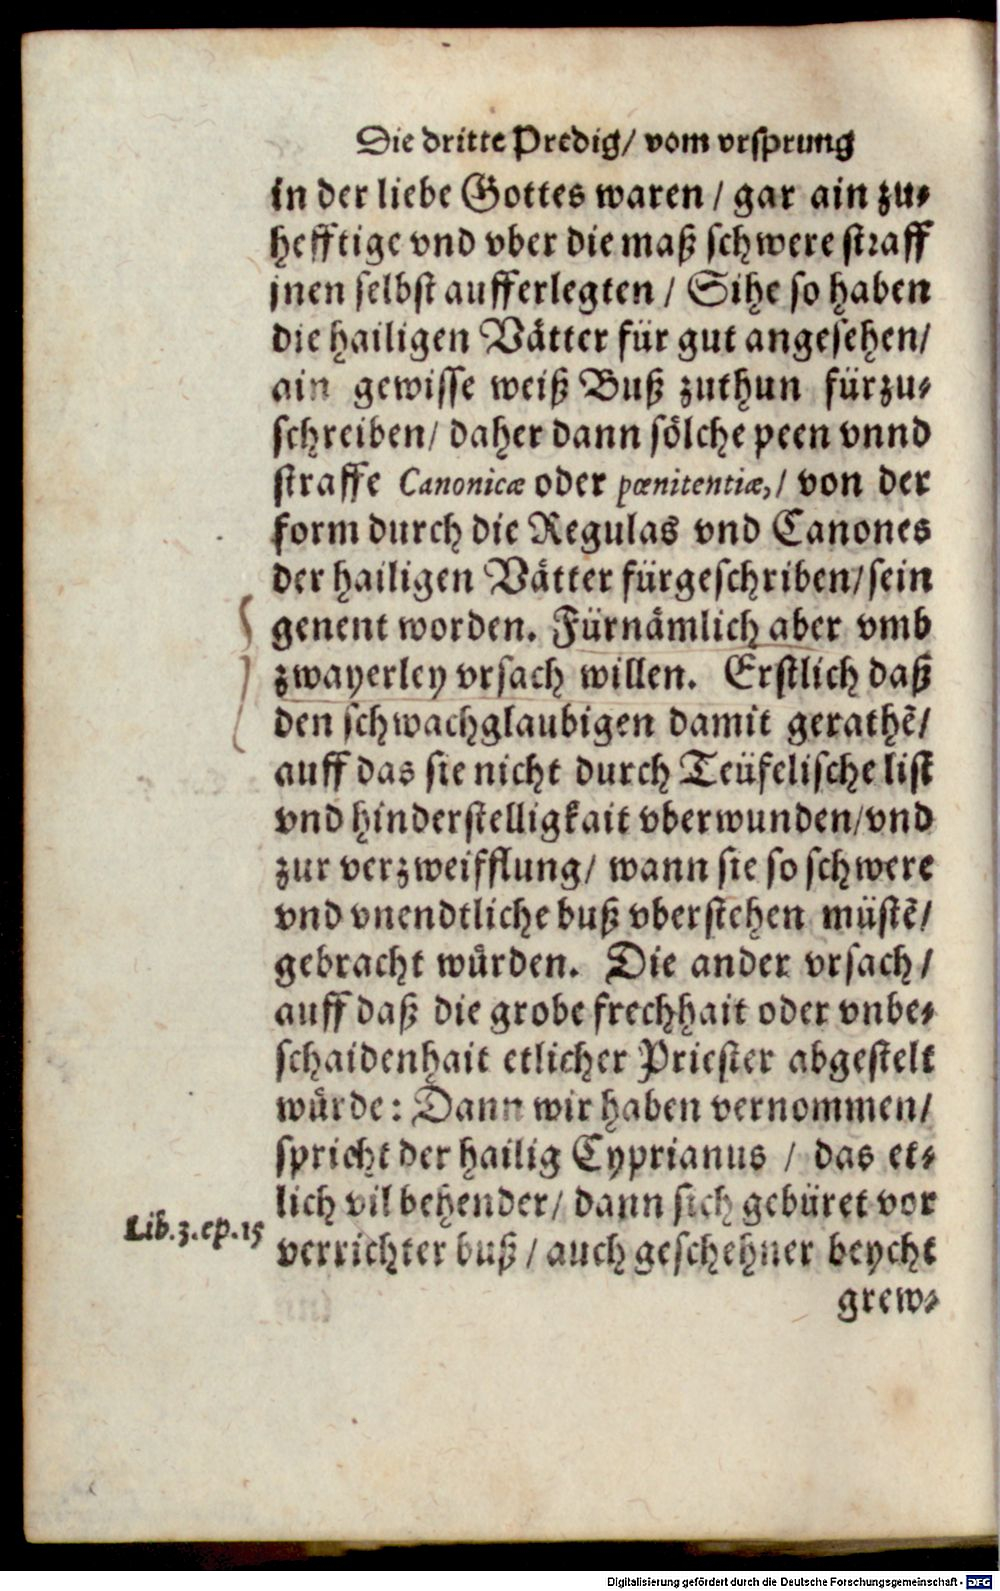 Die dritte Predig/ vom vrsprung
in der liebe Gottes waren / gar ain zu⸗
hefftige vnd vber die maß schwere straff
jnen selbst aufferlegten / Sihe so haben
die hailigen Vätter für gut angesehen/
ain gewisse weiß Buß zuthun fürzu⸗
schreiben/ daher dann sölche peen vnnd
straffe Canonicæ oder pœnitentiæ,/ von der
form durch die Regulas vnd Canones
der hailigen Vätter fürgeschriben/ sein
genent worden. Fürnämlich aber vmb
zwayerley vrsach willen. Erstlich daß
den schwachglaubigen damit gerathẽ/
auff das sie nicht durch Teüfelische list
vnd hinderstelligkait vberwunden/ vnd
zur verzweifflung/ wann sie so schwere
vnd vnendtliche buß vberstehen müstẽ/
gebracht wůrden. Die ander vrsach/
auff daß die grobe frechhait oder vnbe⸗
schaidenhait etlicher Priester abgestelt
wůrde: Dann wir haben vernommen/
spricht der hailig Cyprianus / das et⸗
lich vil behender/ dann sich gebüret vor
Lib.3.ep.15
verrichter buß / auch geschehner beycht
grew⸗
Digitalisierung gefördert durch die Deutsche Forschungsgemeinschaft - DFG